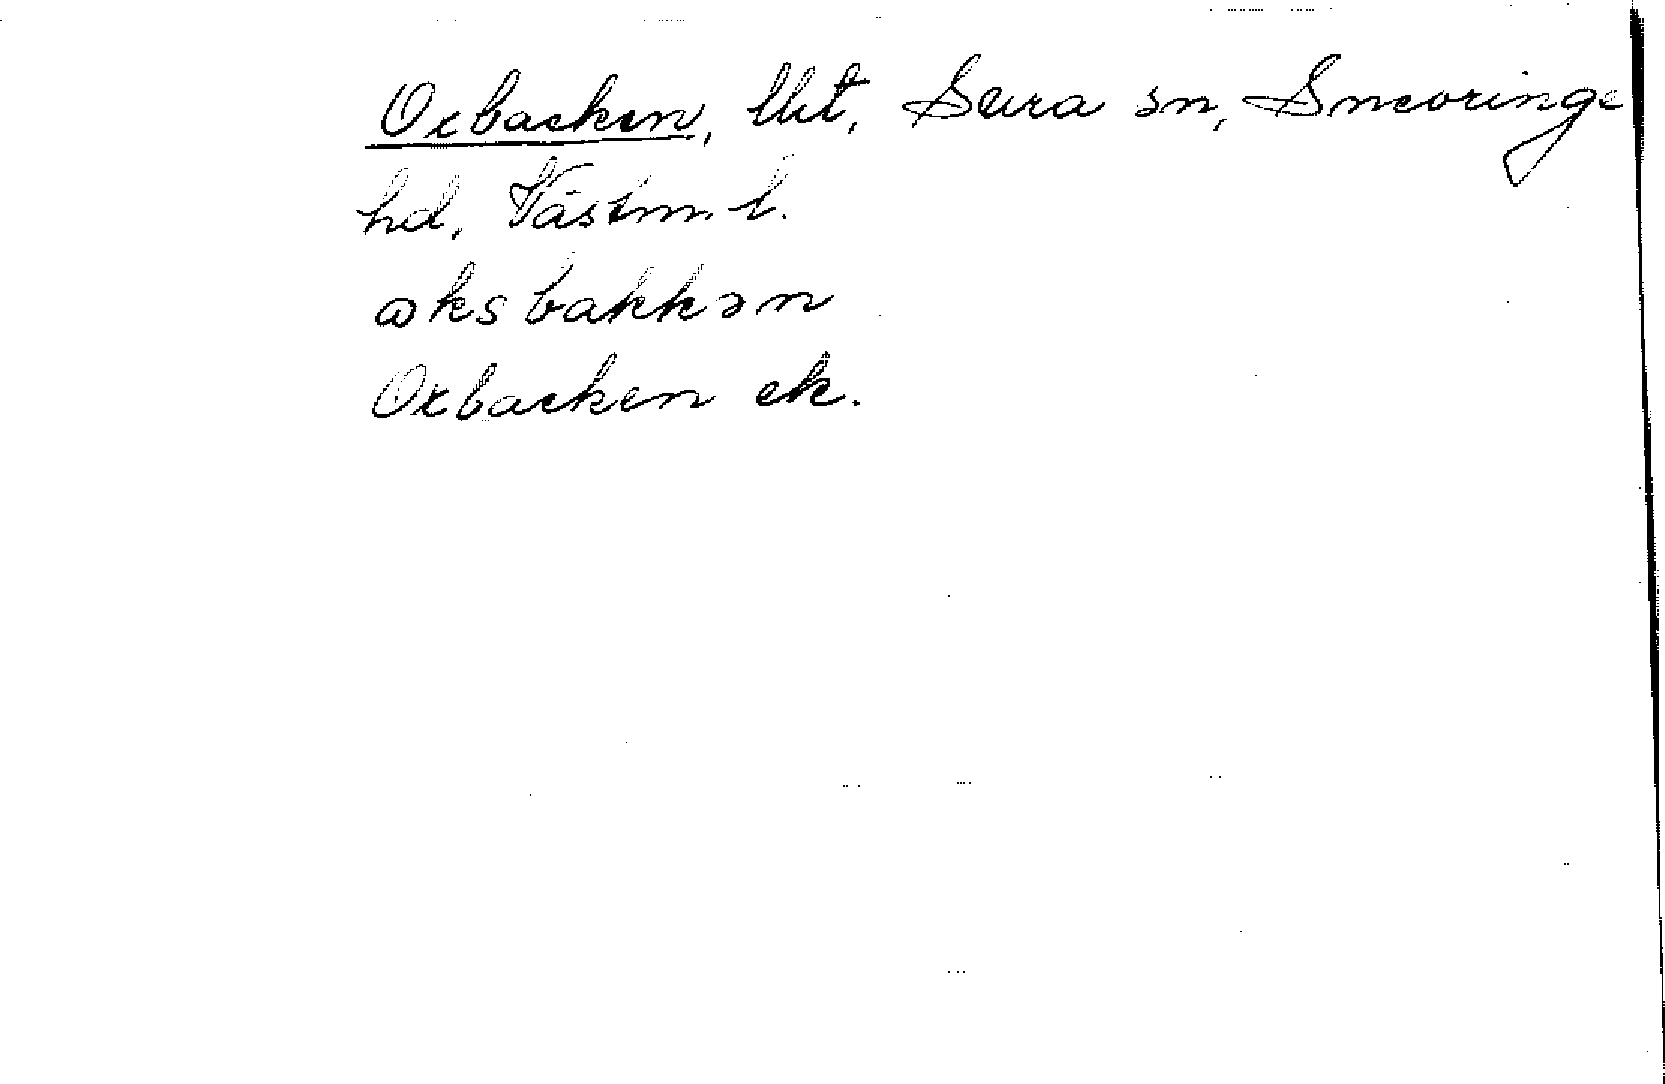 Oxbacken, lht, Sura sn, Snevringe
hd, Västm. l.
ωksbakkən
Oxbacken ek.